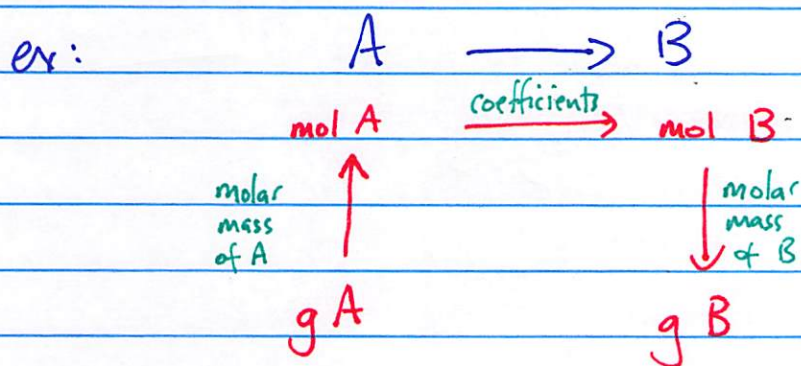 ex: A → B
coefficients
mol A → mol B
molar
mass
of A
↑
molar
mass
of B
↓
g A g B